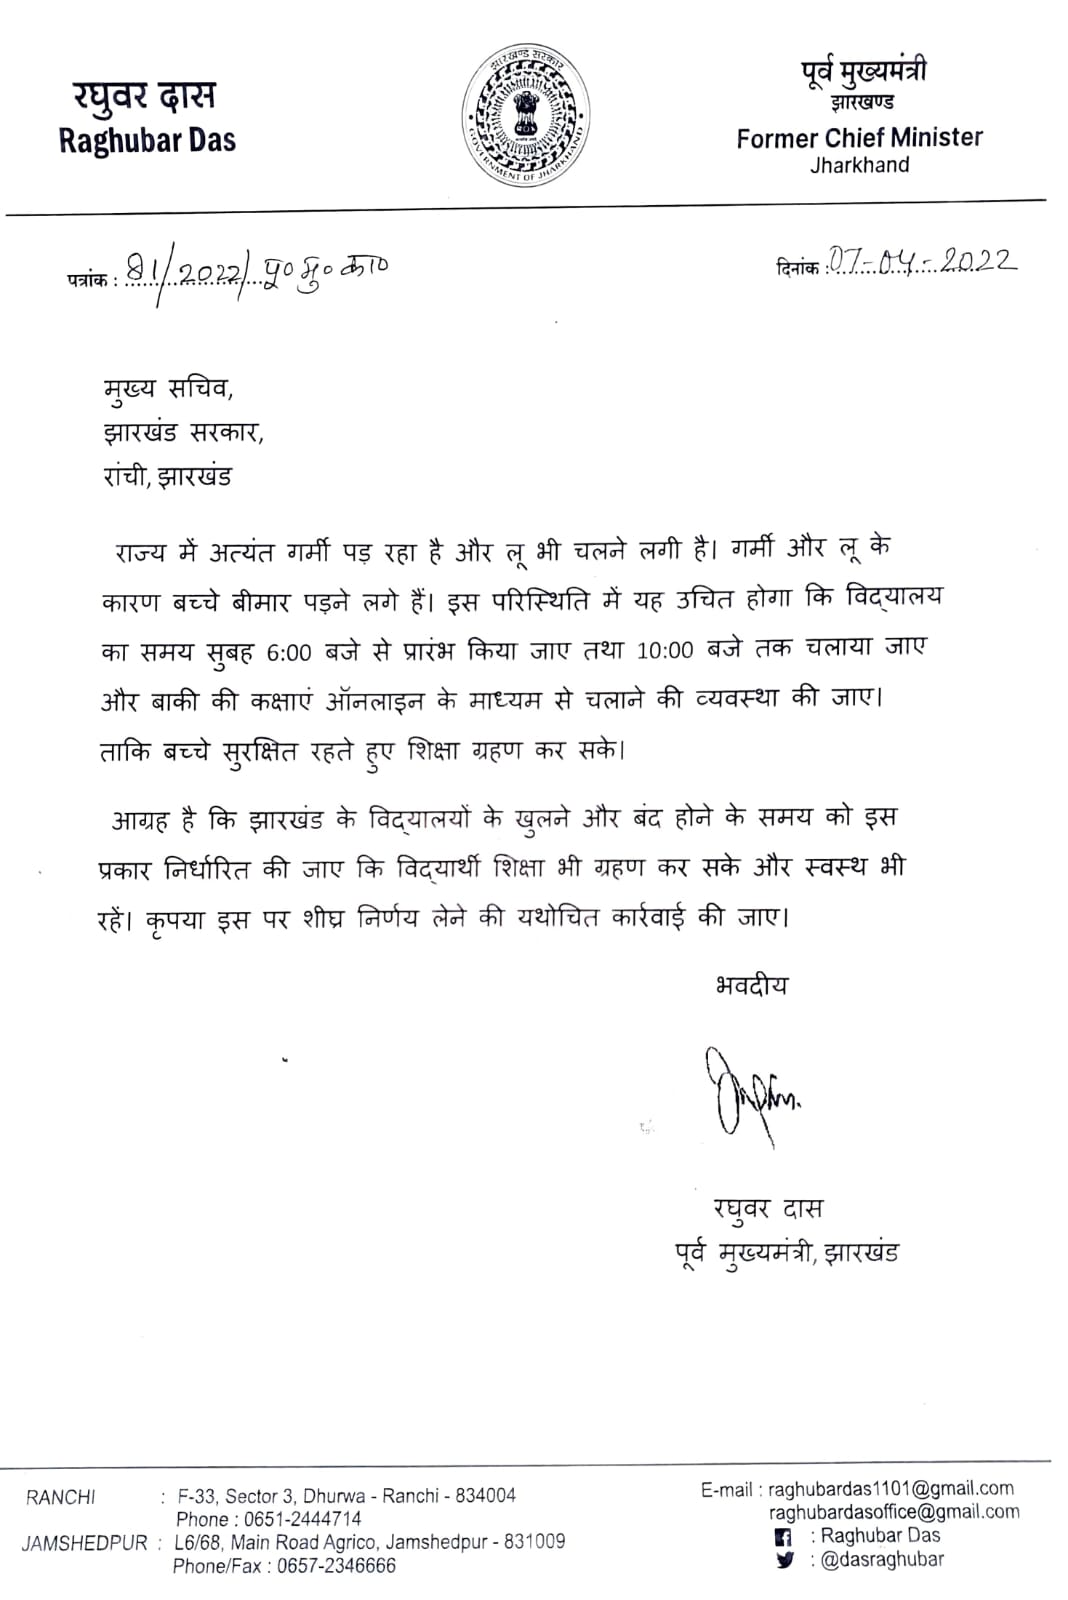 रघुवर दास
Raghubar Das
झारखण्ड सरकार
GOVERNMENT OF JHARKHAND
पूर्व मुख्यमंत्री
झारखण्ड
Former Chief Minister
Jharkhand
पत्रांक : 81/2022/पू० मु० का०
दिनांक : 07-04-2022
मुख्य सचिव,
झारखंड सरकार,
रांची, झारखंड
राज्य में अत्यंत गर्मी पड़ रहा है और लू भी चलने लगी है। गर्मी और लू के
कारण बच्चे बीमार पड़ने लगे हैं। इस परिस्थिति में यह उचित होगा कि विद्यालय
का समय सुबह 6:00 बजे से प्रारंभ किया जाए तथा 10:00 बजे तक चलाया जाए
और बाकी की कक्षाएं ऑनलाइन के माध्यम से चलाने की व्यवस्था की जाए।
ताकि बच्चे सुरक्षित रहते हुए शिक्षा ग्रहण कर सके।
आग्रह है कि झारखंड के विद्यालयों के खुलने और बंद होने के समय को इस
प्रकार निर्धारित की जाए कि विद्यार्थी शिक्षा भी ग्रहण कर सके और स्वस्थ भी
रहें। कृपया इस पर शीघ्र निर्णय लेने की यथोचित कार्रवाई की जाए।
भवदीय
रघुवर दास
पूर्व मुख्यमंत्री, झारखंड
RANCHI : F-33, Sector 3, Dhurwa - Ranchi - 834004
Phone : 0651-2444714
JAMSHEDPUR : L6/68, Main Road Agrico, Jamshedpur - 831009
Phone/Fax : 0657-2346666
E-mail : raghubardas1101@gmail.com
raghubardasoffice@gmail.com
: Raghubar Das
: @dasraghubar